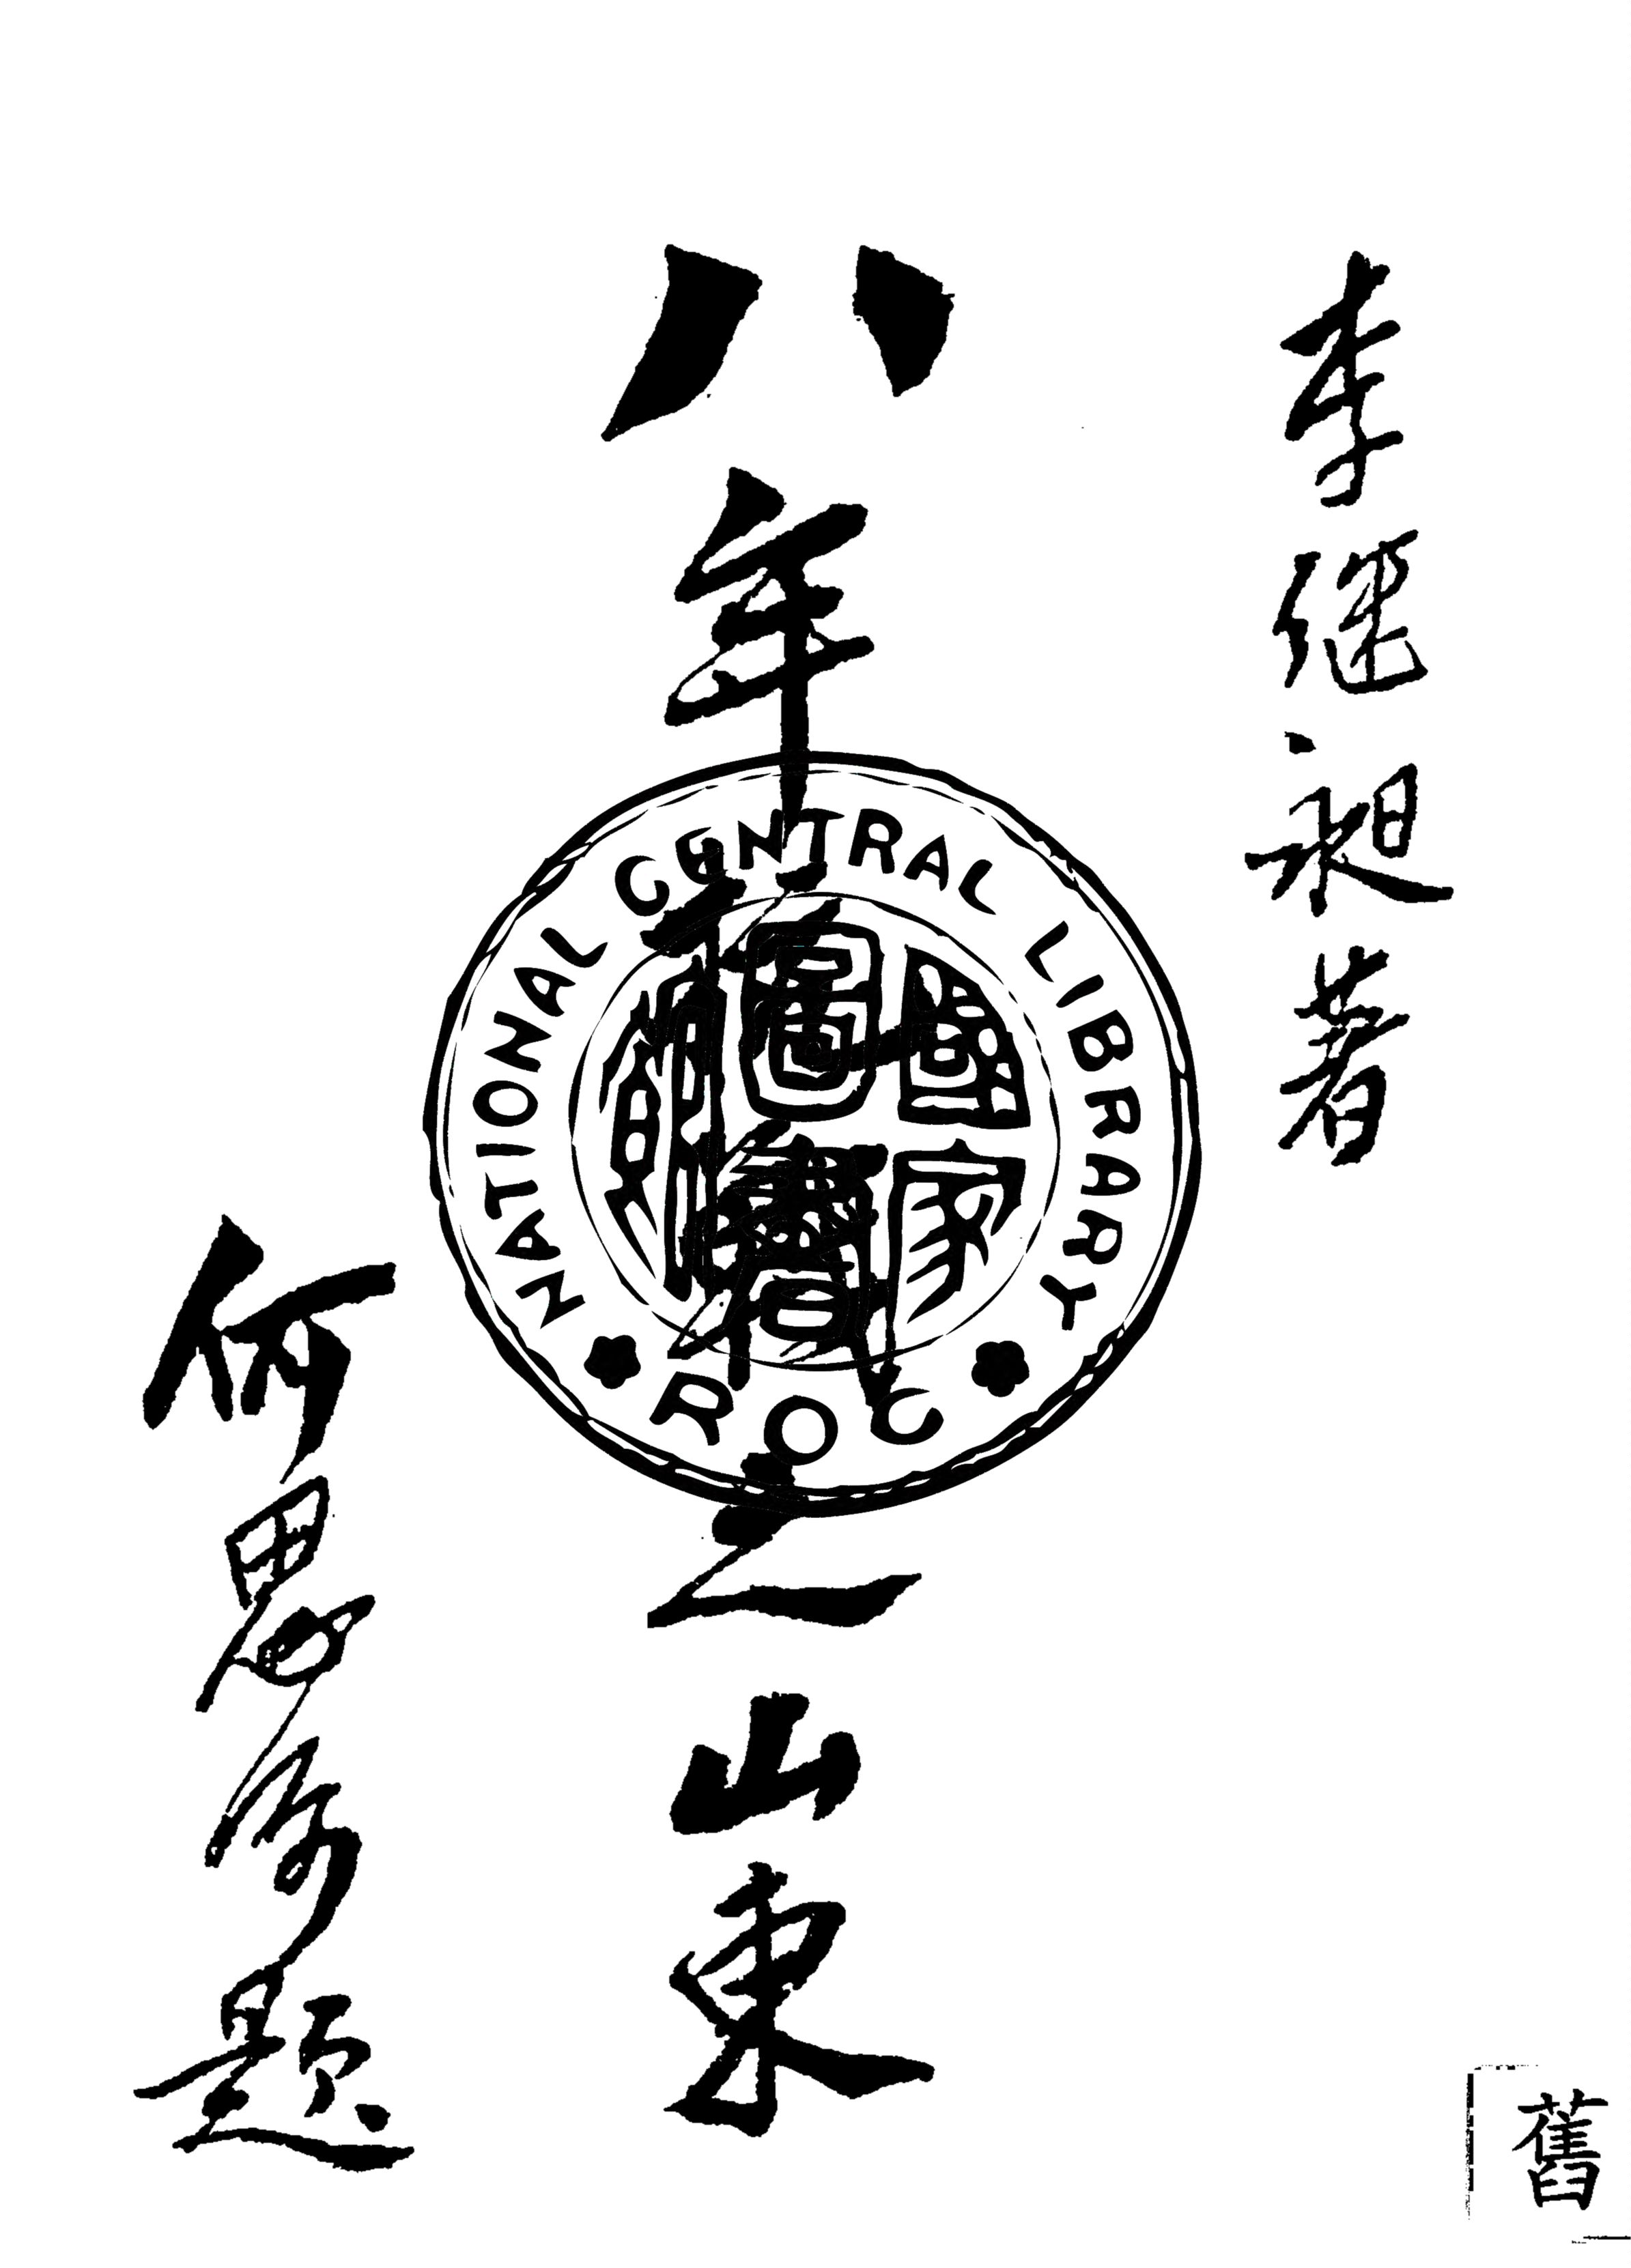 李
著
八年抗戰之山東
何思源題
NATIONAL CENTRAL LIBRARY
R O C
國家圖書館
舊